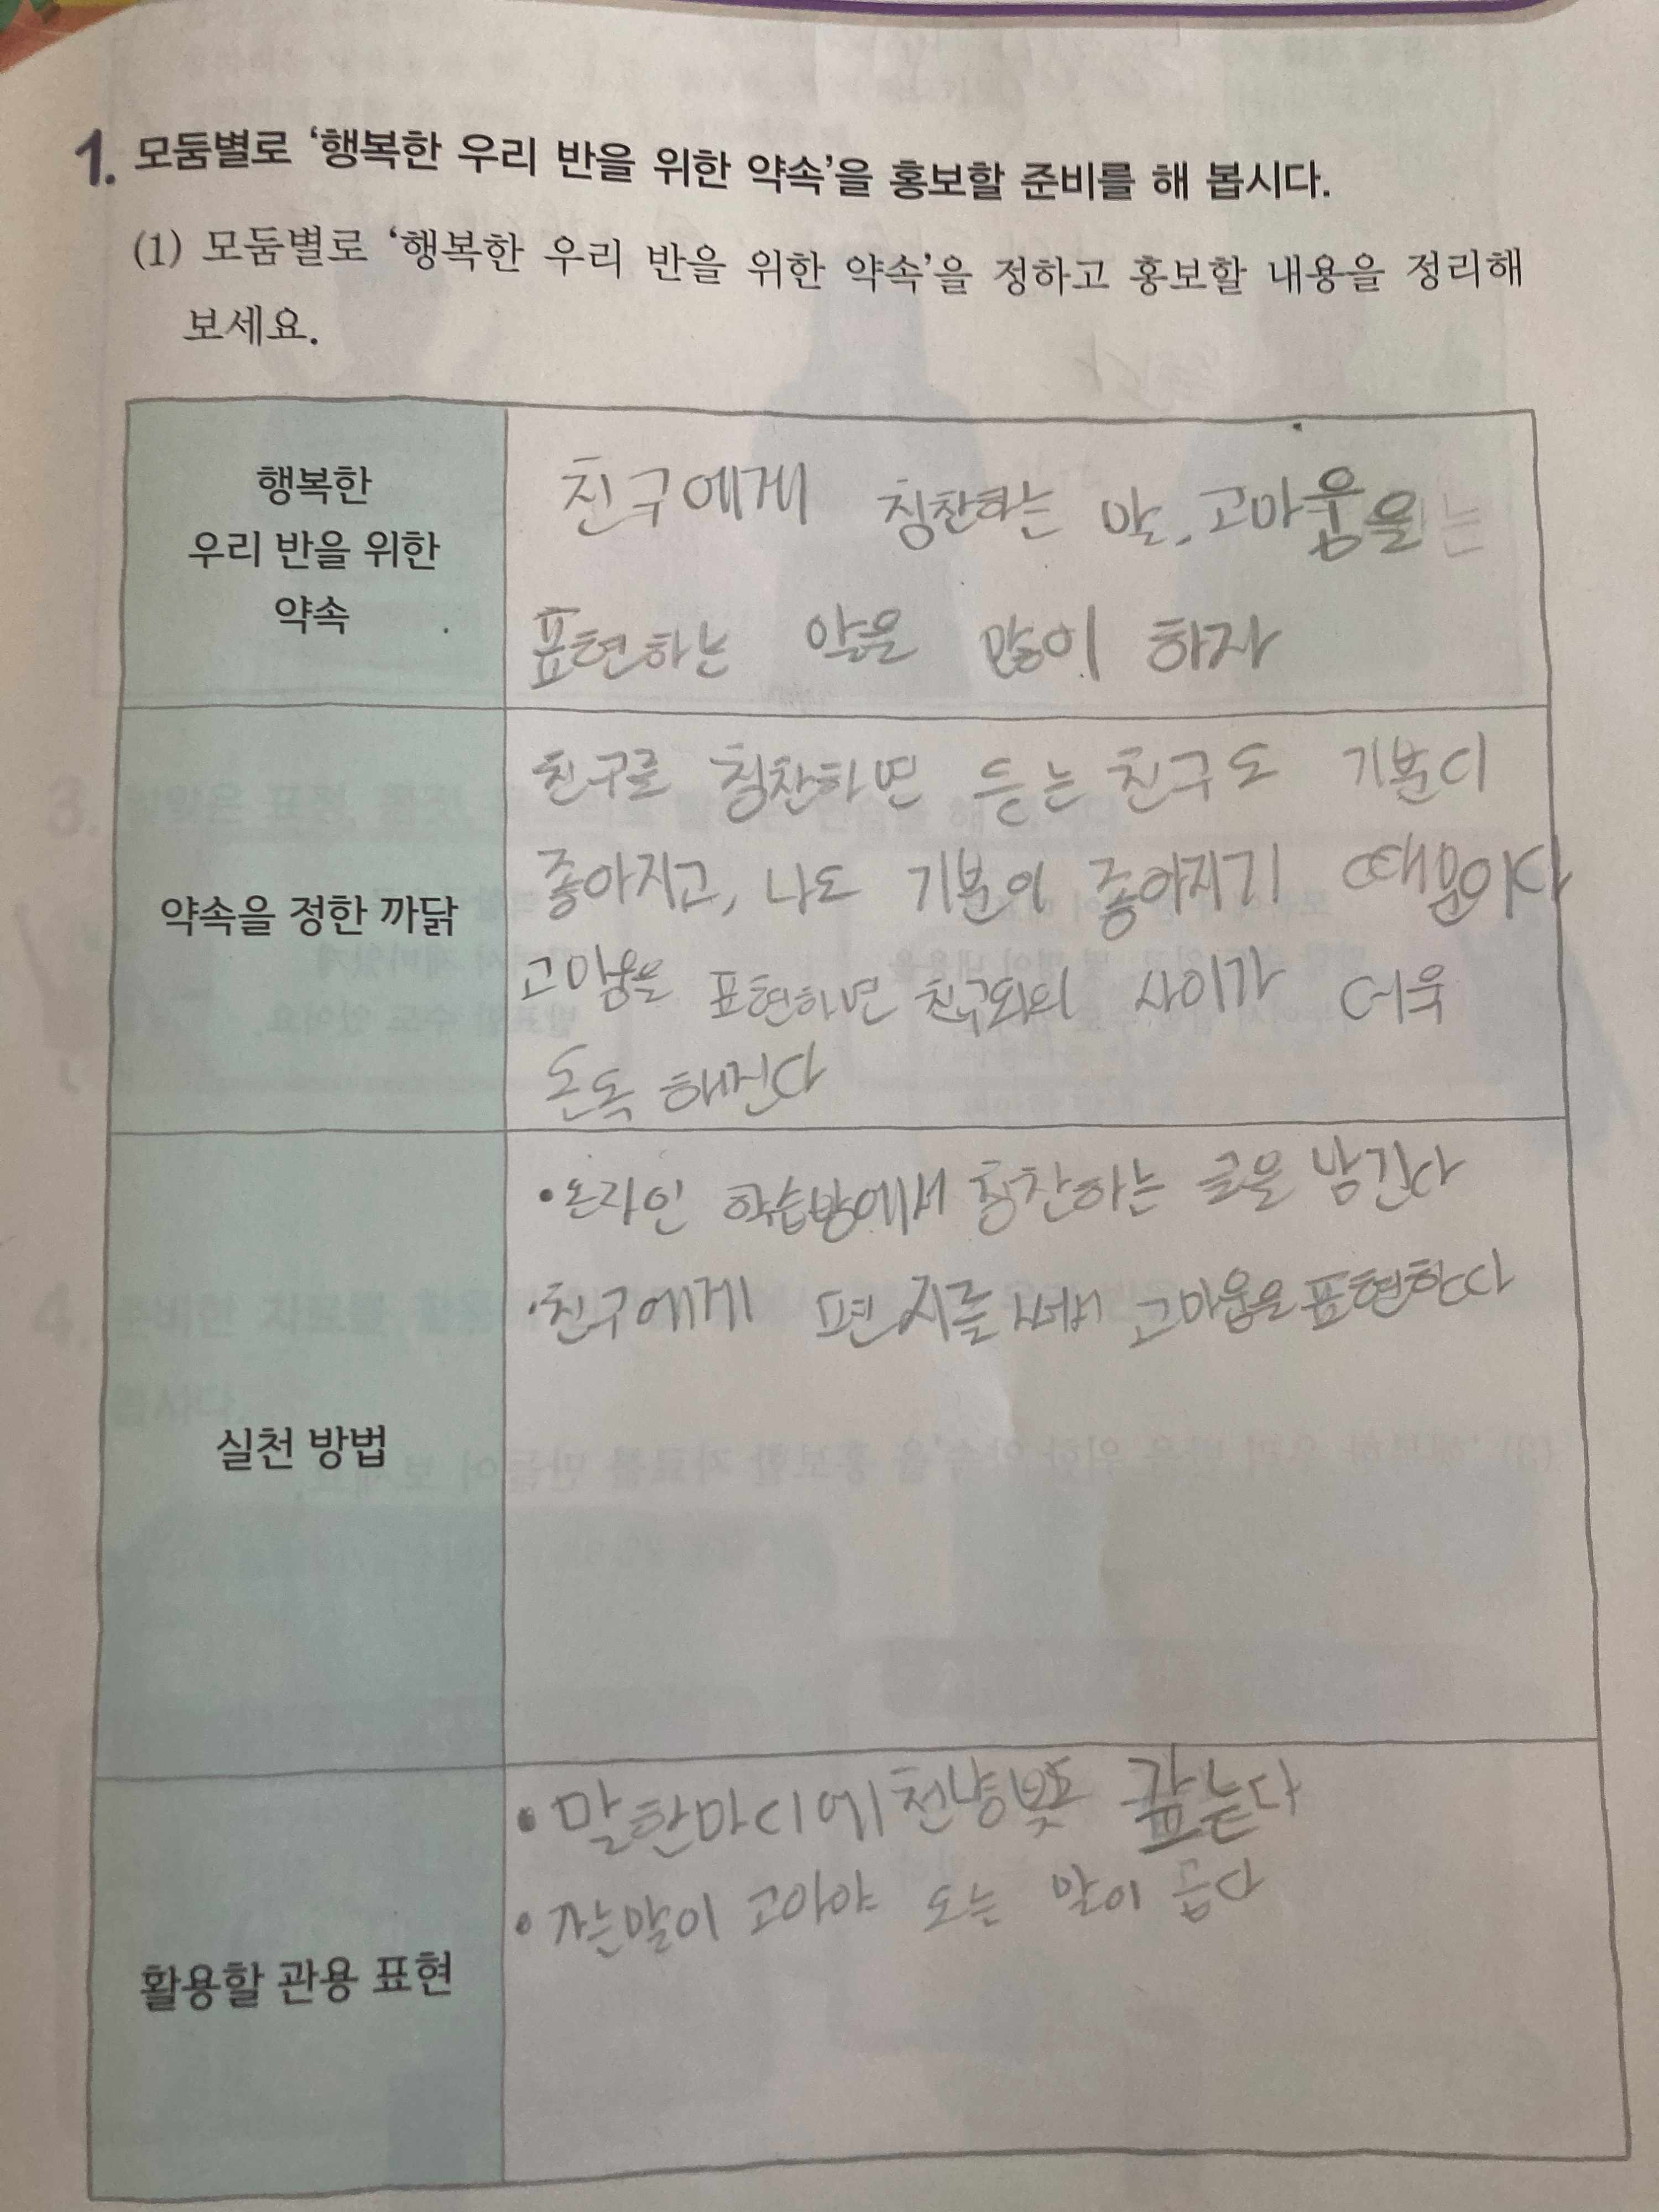 1. 모둠별로 '행복한 우리 반을 위한 약속'을 홍보할 준비를 해 봅시다.
(1) 모둠별로 '행복한 우리 반을 위한 약속'을 정하고 홍보할 내용을 정리해
보세요.
행복한
우리 반을 위한
약속
친구에게 칭찬하는 말, 고마움을
표현하는 말을 많이 하자
약속을 정한 까닭
친구를 칭찬하면 듣는 친구도 기분이
좋아지고, 나도 기분이 좋아지기 때문이다
고마움을 표현하면 친구와의 사이가 더욱
돈독 해진다
실천 방법
•온라인 학습방에서 칭찬하는 글을 남긴다
•친구에게 편지를 써서 고마움을 표현한다
활용할 관용 표현
• 말한마디에 천냥빚도 갚는다
• 가는말이 고아야 오는 말이 곱다